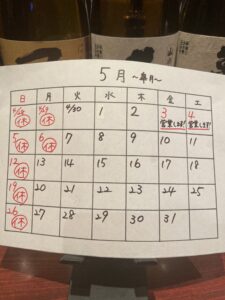 5月 ~皐月~
日 月 火 水 木 金 土
4/28 4/29 4/30 1 2 3 4
休 休 営業します! 営業します!
5 6 7 8 9 10 11
休 休
12 13 14 15 16 17 18
休
19 20 21 22 23 24 25
休
26 27 28 29 30 31
休